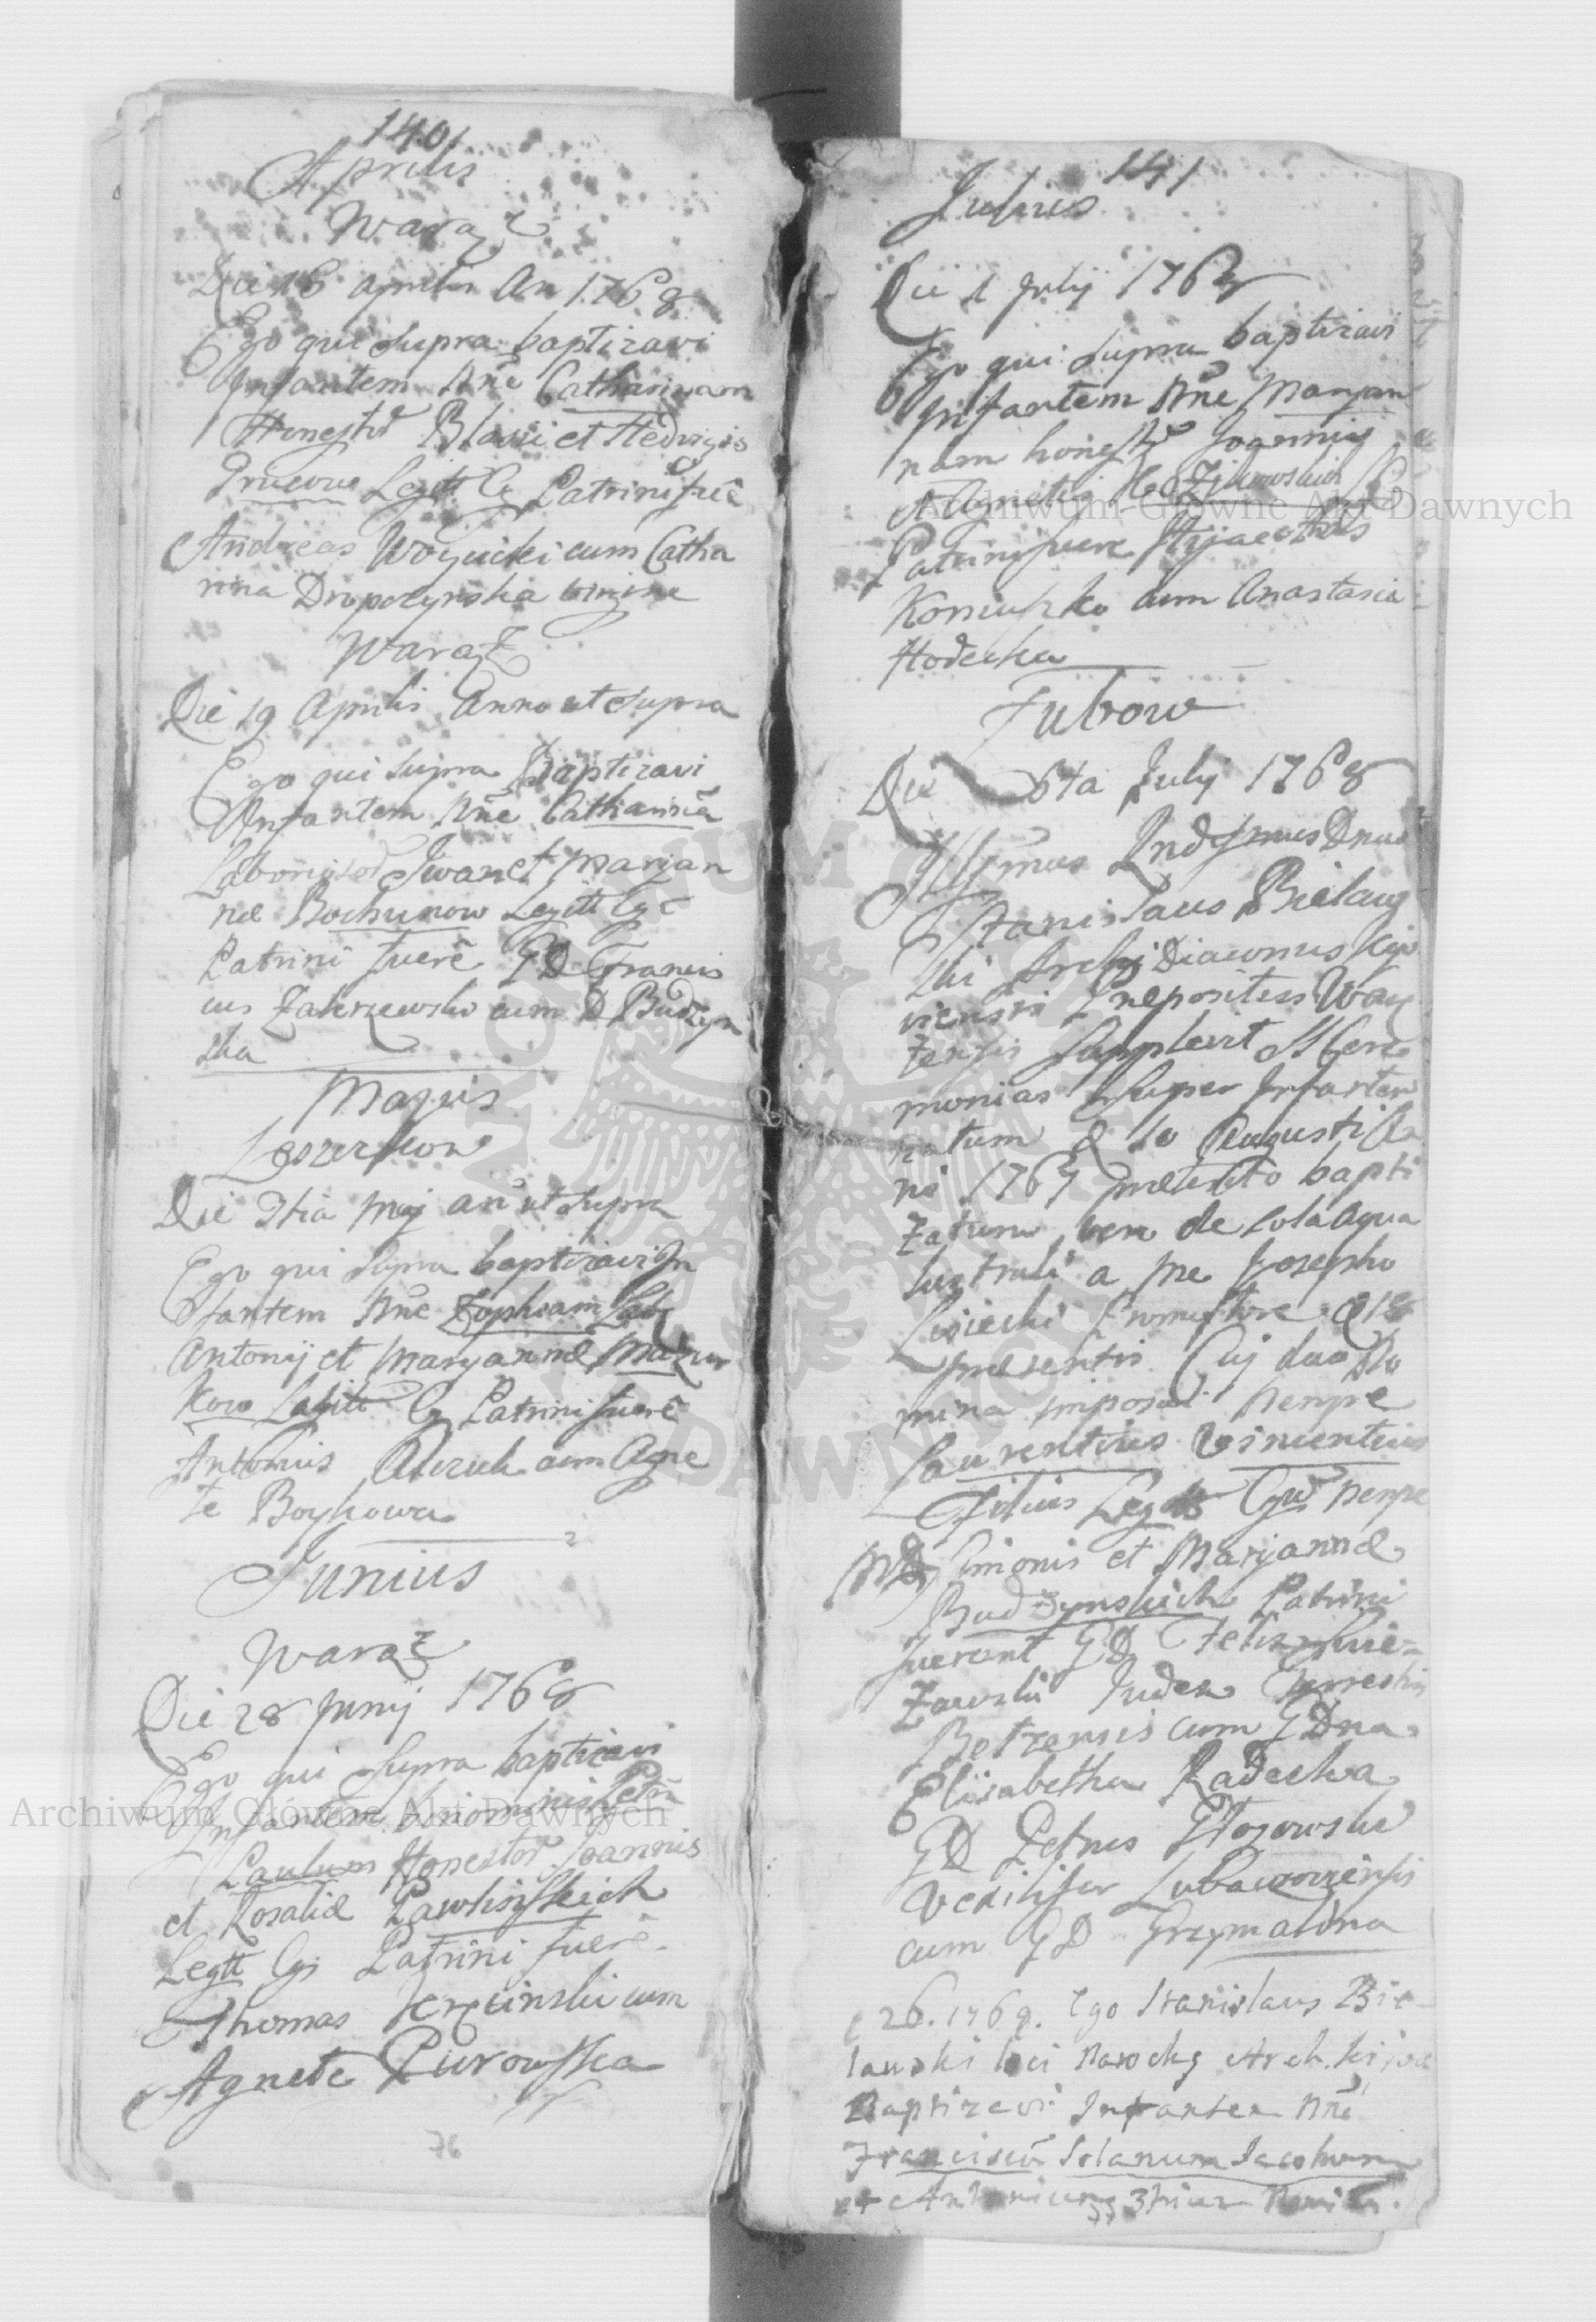 140
Aprilis
Waraz
Die 18 Aprilis An 1768
Ego qui supra baptizavi
Infantem Nne Catharinam
Honestor Blasii et Hedvigis
Legitt Cg Patrini fuere
Andreas Woycicki cum Catha
rina Dropozynska virgine
Waraz
Die 19 Aprilis Anno ut supra
Ego qui supra Baptizavi
Infantem Nne Catharina
Laborisor Iwan et Marjan
nae Bochunow Legitt Cg
Patrini fuere GD Francis
cus Zakrzewski cum D Budzyn
ska
Majus
Leszczkow
Die 3tia Maj an ut supra
Ego qui supra baptizavi In
fantem Nne Zophiam Lab
Antonij et Maryannae Mazur
kow Legitt Cg Patrini fuere
Antonius cum Agne
te Boykowa
Junius
Waraz
Die 28 Junij 1768
Ego qui supra baptizavi
Infantem binominis Petru
Paulum Honestor Joannis
et Rosaliae Pawlinskich
Legtt Cgi Patrini fuere
Thomas cum
Agnete Piurowska
76
141
Julius
Die 1 July 1768
Ego qui supra baptizavi
Infantem Nne Maryan
nam honestor Joannis
Agnetis
Patrini fuere Hyacinthus
Koniuszko cum Anastasia
Hodecka
Tubow
Die 6ta July 1768
Illsmus Rndssmus Dnus
Stanislaus Bielaws
ki Archi Diaconus Kijo
viensis Praepositus Waręz
zensis supplevit SS Cere
monias super Infantem
natum d 10 Augusti An
no 1767 praeterito bapti
zatum vero de sola Aqua
lustrali a me Josepho
Lisiecki Promotore d 18
praesentis Cuj duo No
mina imposuit nempe
Laurentius Vincentius
Filius Legit Cgu nempe
MD Simonis et Maryannae
Budzynskich Patrini
fuerunt GD Felix
zawski Judex Terrestris
Belzensis cum GDna
Elisabetha Radecka
GD Petrus Głogowski
Vexilifer Lubaczoviensis
cum GD Grzymalina
26. 1769. Ego Stanislaus Bie
lawski loci Parochg Arch. kijow
Baptizavi Infantem Nne
Franciscu Solanum Jacobum
et Antonium 3trium Nomin.
77
Archiwum Główne Akt Dawnych
Archiwum Główne Akt Dawnych